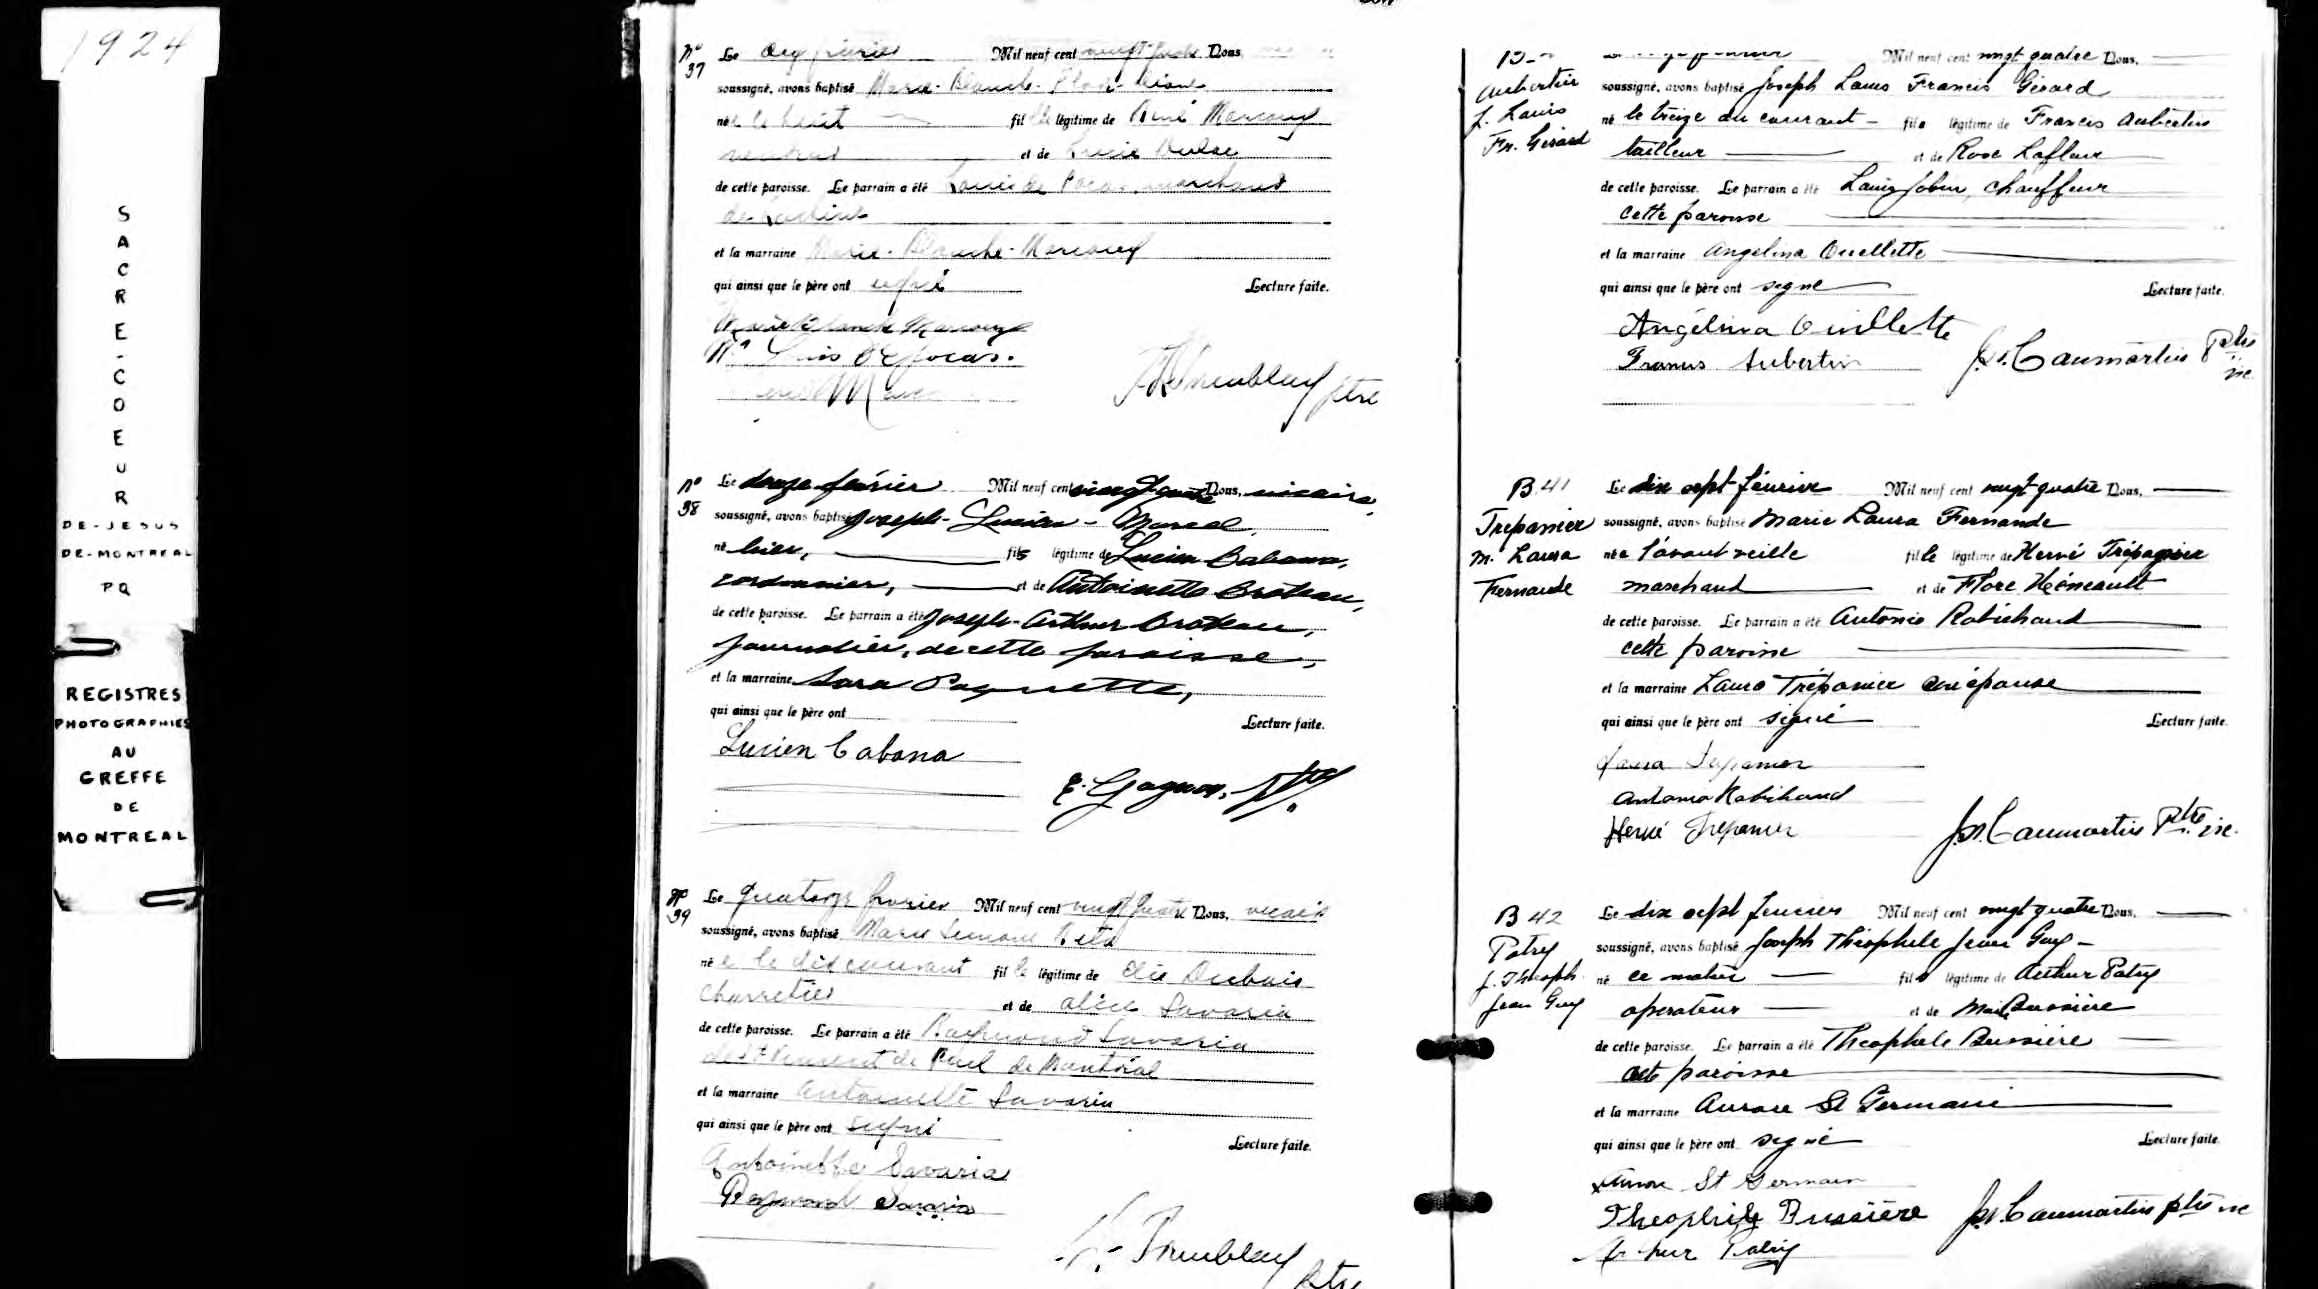 1924
SACRE-COEUR
DE-JESUS
DE-MONTREAL
PQ
REGISTRES
PHOTOGRAPHIES
AU
GREFFE
DE
MONTREAL
No 37
Le février Mil neuf cent vingt quatre Nous,
soussigné, avons baptisé Marie-Blanche-
née le huit fille légitime de René Marcoux
et de Lucie
de cette paroisse. Le parrain a été Louis de marchand
de Lachine
et la marraine Marie-Blanche-Marcoux
qui ainsi que le père ont signé Lecture faite.
Marie Blanche Marcoux
Tremblay ptre
No 38
Le douze février Mil neuf cent vingt quatre Nous, vicaire,
soussigné, avons baptisé Joseph-Lucien-Marcel,
né hier, fils légitime de Lucien Cabana,
cordonnier, et de Antoinette Broteau,
de cette paroisse. Le parrain a été Joseph-Arthur Broteau,
journalier, de cette paroisse,
et la marraine Sara Paquette,
qui ainsi que le père ont Lecture faite.
Lucien Cabana
E. Gagnon, ptre
No 39
Le quatorze fevrier Mil neuf cent vingt quatre Nous, vicaire
soussigné, avons baptisé Marie Simone Rita
née le dix courant fille légitime de Elie Dubois
charretier et de Alice Savaria
de cette paroisse. Le parrain a été Raymond Savaria
de St Vincent de Paul de Montréal
et la marraine Antoinette Savaria
qui ainsi que le père ont signé Lecture faite.
Antoinette Savaria
Raymond Savaria
Tremblay ptre
Aubertin
J. Louis
Fr. Gérard
Mil neuf cent vingt quatre Nous,
soussigné, avons baptisé Joseph Louis Francis Gérard
né le treize du courant - fils légitime de Francis Aubertin
tailleur et de Rose Lafleur
de cette paroisse. Le parrain a été Louis Jobin, chauffeur
cette paroisse
et la marraine Angelina Ouellette
qui ainsi que le père ont signé Lecture faite.
Angélina Ouillette
Francis Aubertin
Jos. Caumartin Ptre vic.
B 41
Trepanier
M. Laura
Fernande
Le dix sept février Mil neuf cent vingt quatre Nous,
soussigné, avons baptisé Marie Laura Fernande
née l'avant veille fille légitime de Hervé Trépanier
marchand et de Flore Héneault
de cette paroisse. Le parrain a été Antonio Robichaud
cette paroisse
et la marraine Laura Trépanier son épouse
qui ainsi que le père ont signé Lecture faite.
Laura Trepanier
Antonio Robichaud
Hervé Trepanier
Jos. Caumartin Ptre vic.
B 42
Patry
J. Theoph
Jean Guy
Le dix sept fevrier Mil neuf cent vingt quatre Nous,
soussigné, avons baptisé Joseph Théophile Jean Guy -
né ce matin fils légitime de Arthur Patry
operateur et de Marie Bussière
de cette paroisse. Le parrain a été Theophile Bussière
cette paroisse
et la marraine Aurore St Germain
qui ainsi que le père ont signé Lecture faite.
Aurore St Germain
Theophile Bussière
Arthur Patry
Jos. Caumartin ptre vic